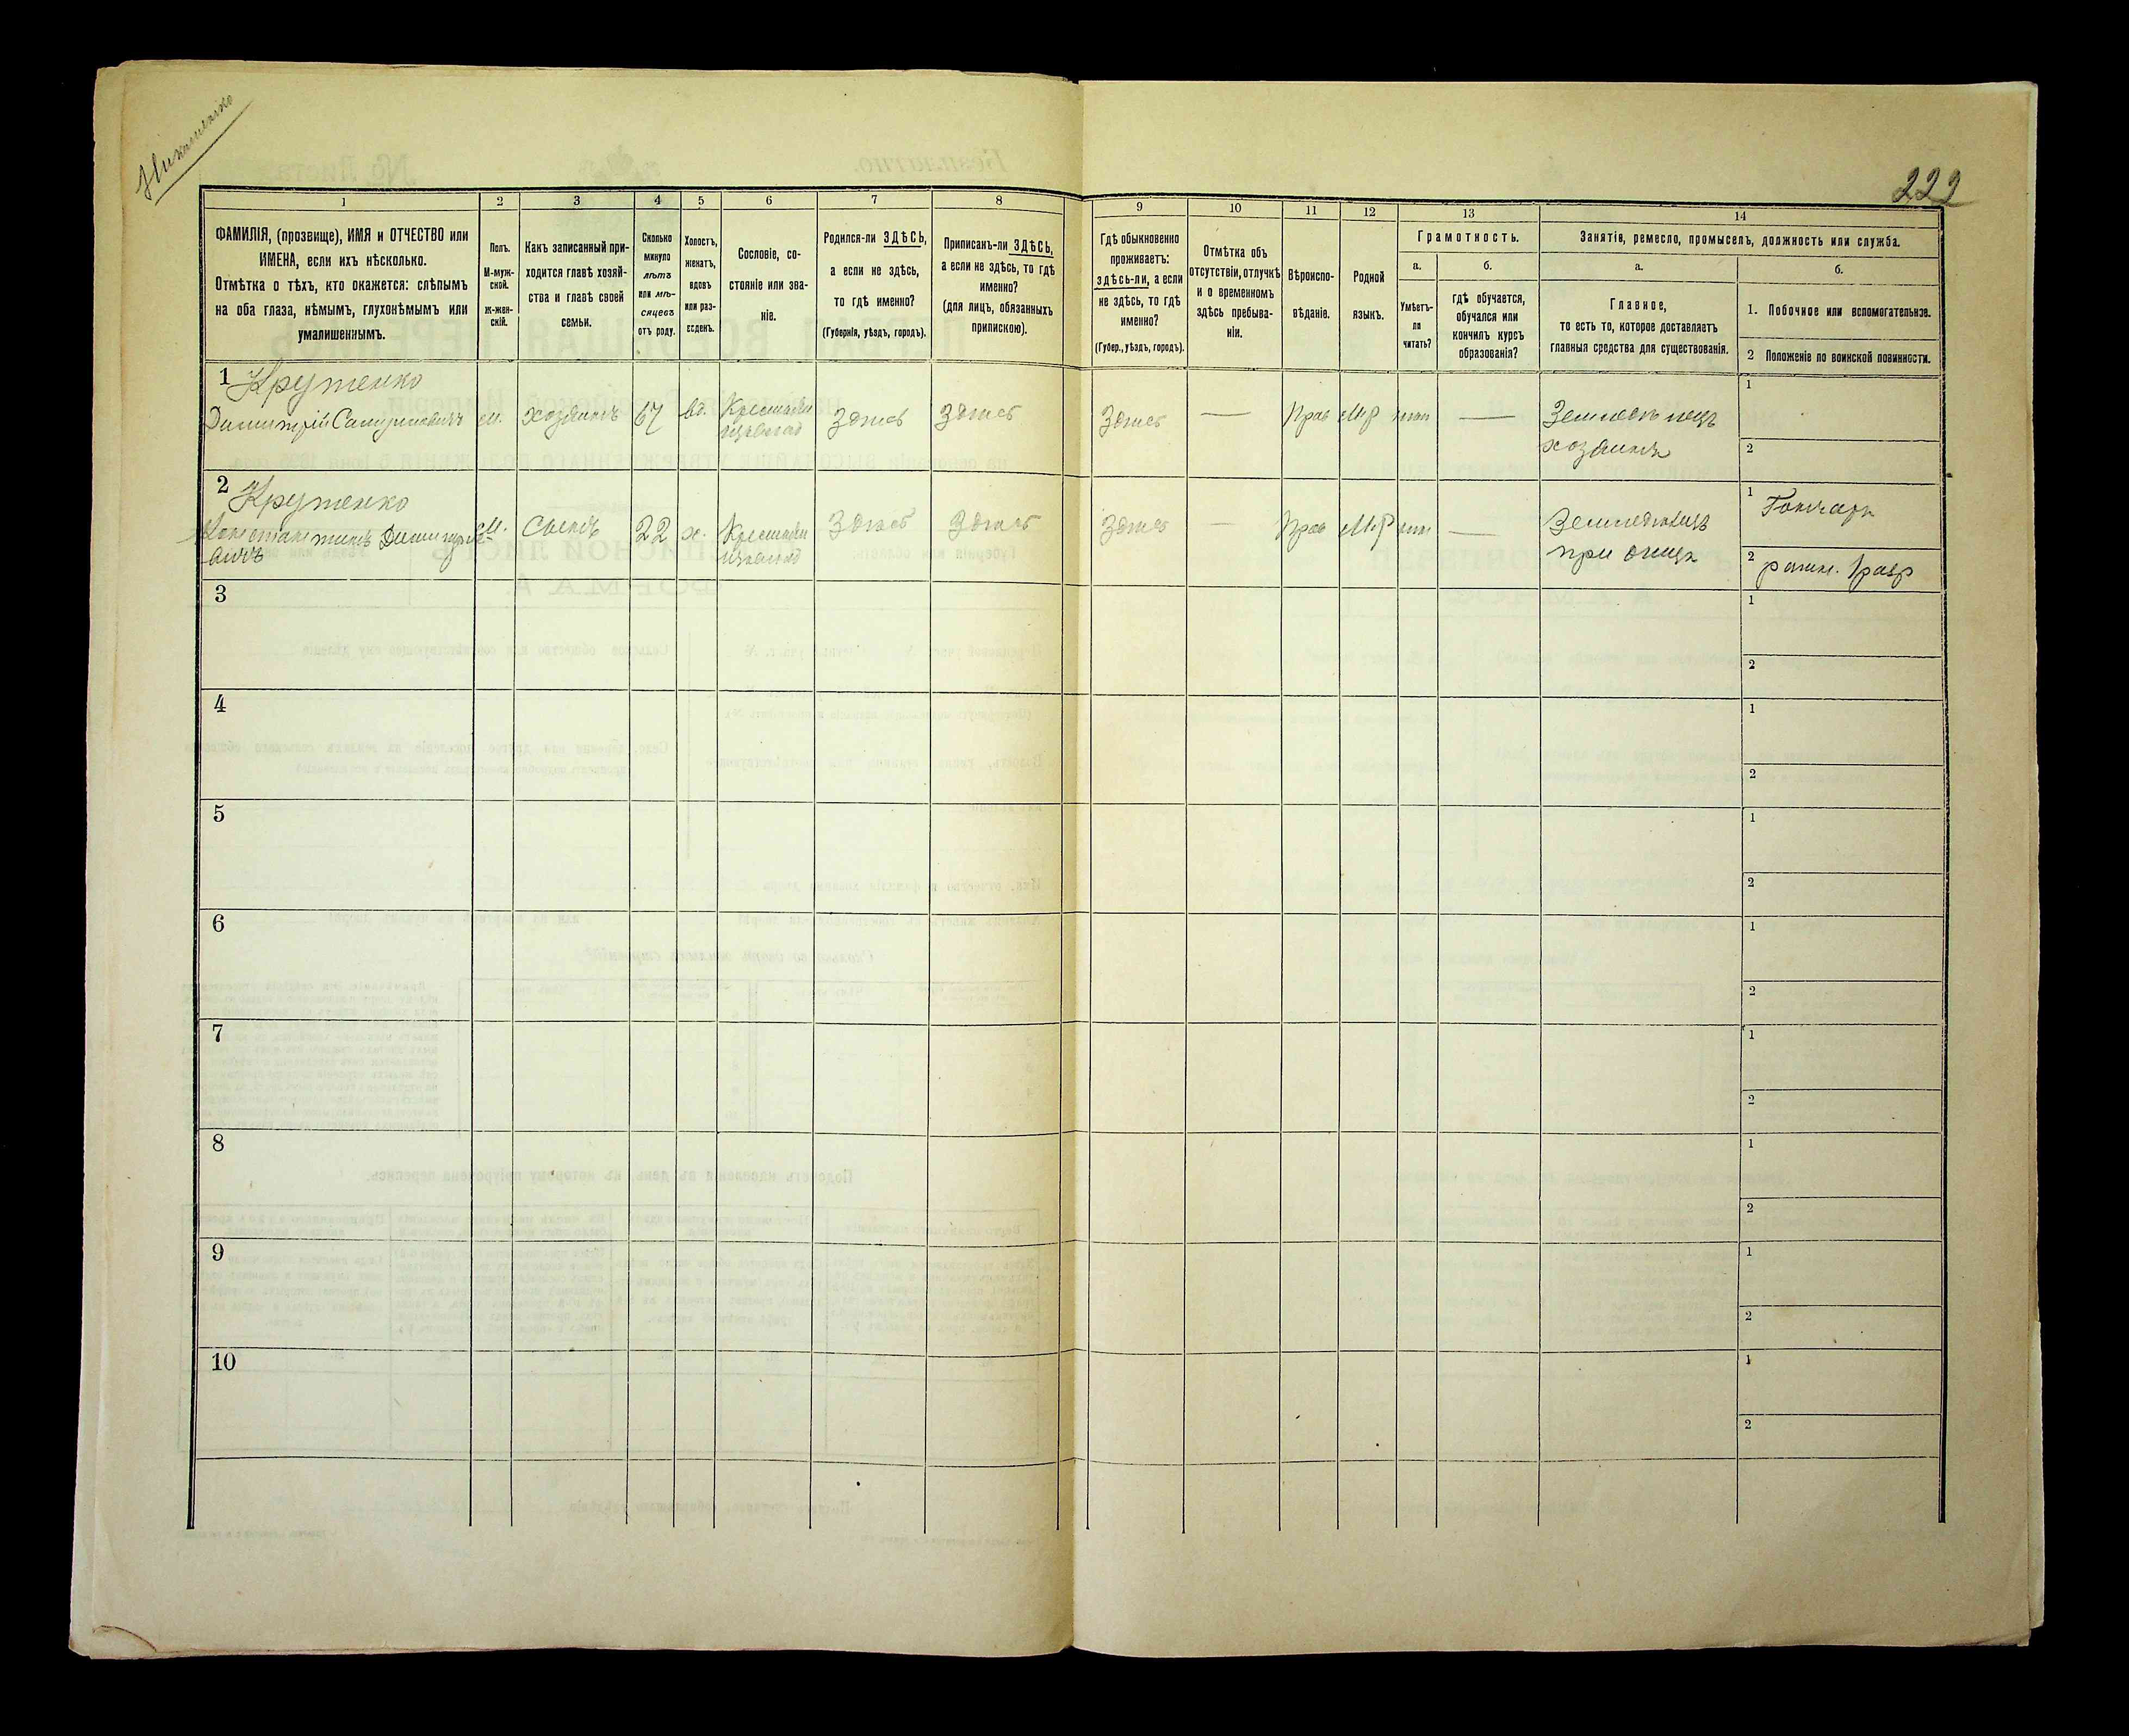 Никитенко
222
1
2
3
4
5
6
7
8
9
10
11
12
13
14
ФАМИЛІЯ, (прозвище), ИМЯ и ОТЧЕСТВО или
ИМЕНА, если ихъ нѣсколько.
Отмѣтка о тѣхъ, кто окажется: слѣпымъ
на оба глаза, нѣмымъ, глухонѣмымъ или
умалишеннымъ.
Полъ.
М-муж-
ской.
Ж-жен-
скій.
Какъ записанный при-
ходится главѣ хозяй-
ства и главѣ своей
семьи.
Сколько
минуло
лѣтъ
или мѣ-
сяцевъ
отъ роду.
Холостъ,
женатъ,
вдовъ
или раз-
веденъ.
Сословіе, со-
стояніе или зва-
ніе.
Родился-ли ЗДѢСЬ,
а если не здѣсь,
то гдѣ именно?
(Губернія, уѣздъ, городъ).
Приписанъ-ли ЗДѢСЬ,
а если не здѣсь, то гдѣ
именно?
(для лицъ, обязанныхъ
припискою).
Гдѣ обыкновенно
проживаетъ:
здѣсь-ли, а если
не здѣсь, то гдѣ
именно?
(Губер., уѣздъ, городъ).
Отмѣтка объ
отсутствіи, отлучкѣ
и о временномъ
здѣсь пребыва-
ніи.
Вѣроиспо-
вѣданіе.
Родной
языкъ.
Грамотность.
а.
Умѣетъ-
ли
читать?
б.
гдѣ обучается,
обучался или
кончилъ курсъ
образованія?
Занятіе, ремесло, промыселъ, должность или служба.
а.
Главное,
то есть то, которое доставляетъ
главныя средства для существованія.
б.
1. Побочное или вспомогательное.
2 Положеніе по воинской повинности.
1 Крутенко
Димитрій м. хозяинъ 67 вд. Здѣсь Здѣсь Здѣсь — Прав М.р нѣтъ — Земледѣлецъ
хозяинъ
1
2
2 Крутенко
Константинъ Димитрі-
евичъ
м. сынъ 22 х. Здѣсь Здѣсь Здѣсь — Прав М.р нѣтъ — Земледѣлецъ
при отцѣ
1 Гончаръ
2 ратн. 1 разр
3
1
2
4
1
2
5
1
2
6
1
2
7
1
2
8
1
2
9
1
2
10
1
2